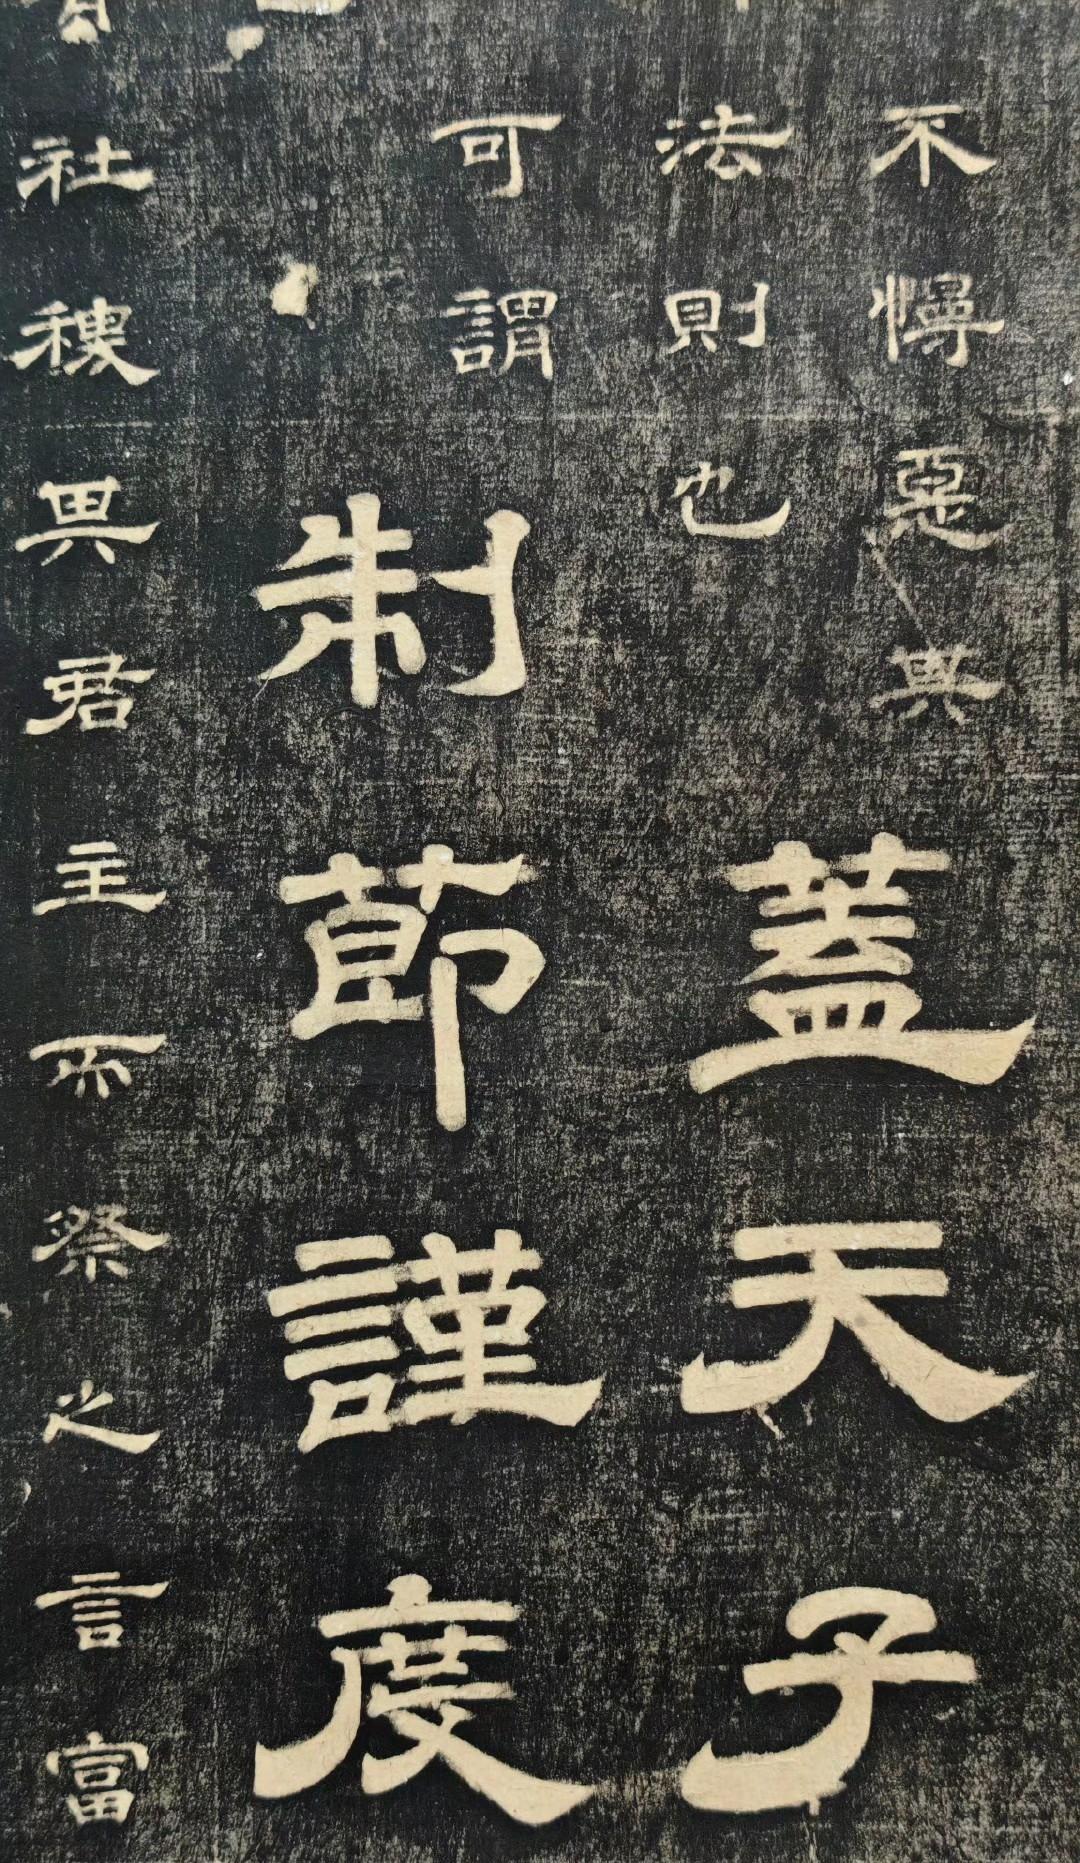 不慢惡其
法則也
蓋天子
可謂
制節謹度
社稷其君主而祭之言富